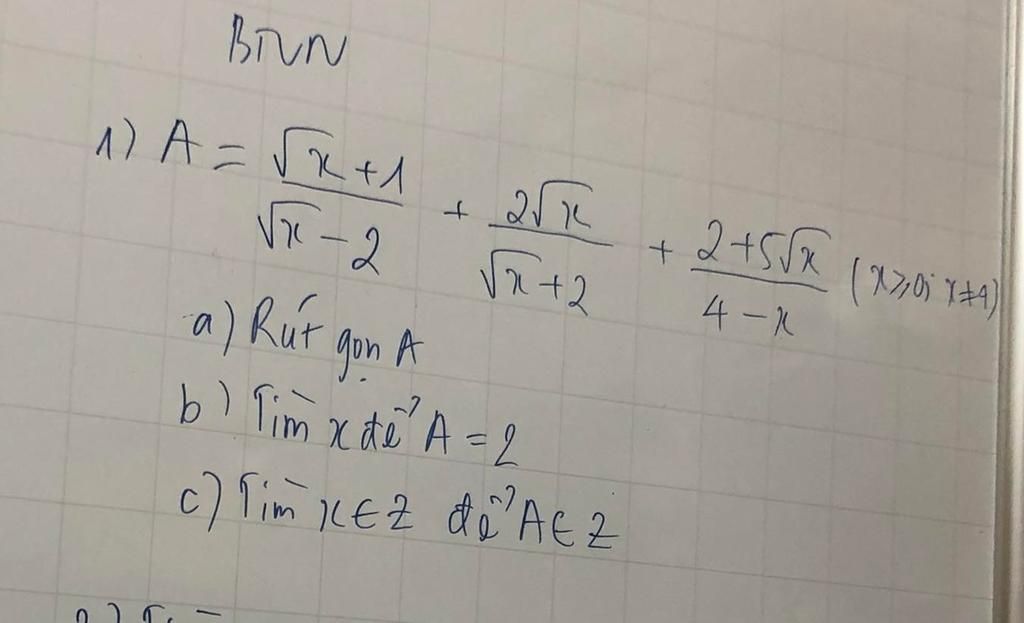 BTVN
1) A = \frac{\sqrt{x}+1}{\sqrt{x}-2} + \frac{2\sqrt{x}}{\sqrt{x}+2} + \frac{2+5\sqrt{x}}{4-x} (x⩾0; x≠4)
a) Rút gọn A
b) Tìm x để A = 2
c) Tìm x∈Z để A∈Z